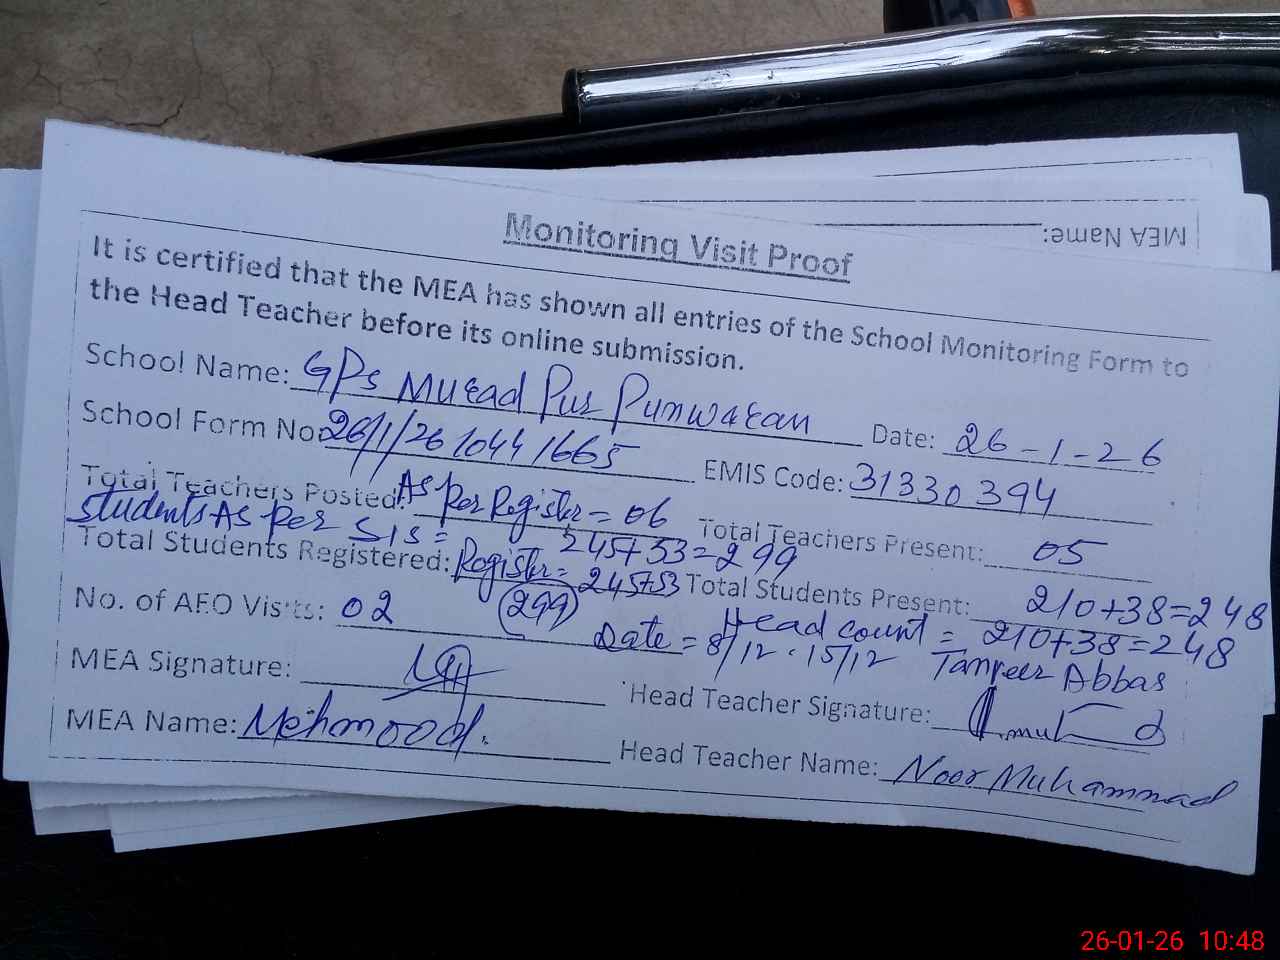 MEA Name:
Monitoring Visit Proof
It is certified that the MEA has shown all entries of the School Monitoring Form to
the Head Teacher before its online submission.
School Name: GPs Murad Pur Punwaran Date: 26-1-26
School Form No: 26/1/26 10441665 EMIS Code: 31330394
Total Teachers Posted: As Per Register = 06 Total Teachers Present: 05
Students As Per SIS = 245+53=299
Total Students Registered: Register = 245+53 Total Students Present: 210+38=248
(299) Head count = 210+38=248
No. of AEO Visits: 02 Date = 8/12 . 15/12 Tanveer Abbas
MEA Signature: Head Teacher Signature:
MEA Name: Mehmood. Head Teacher Name: Noor Muhammad
26-01-26 10:48